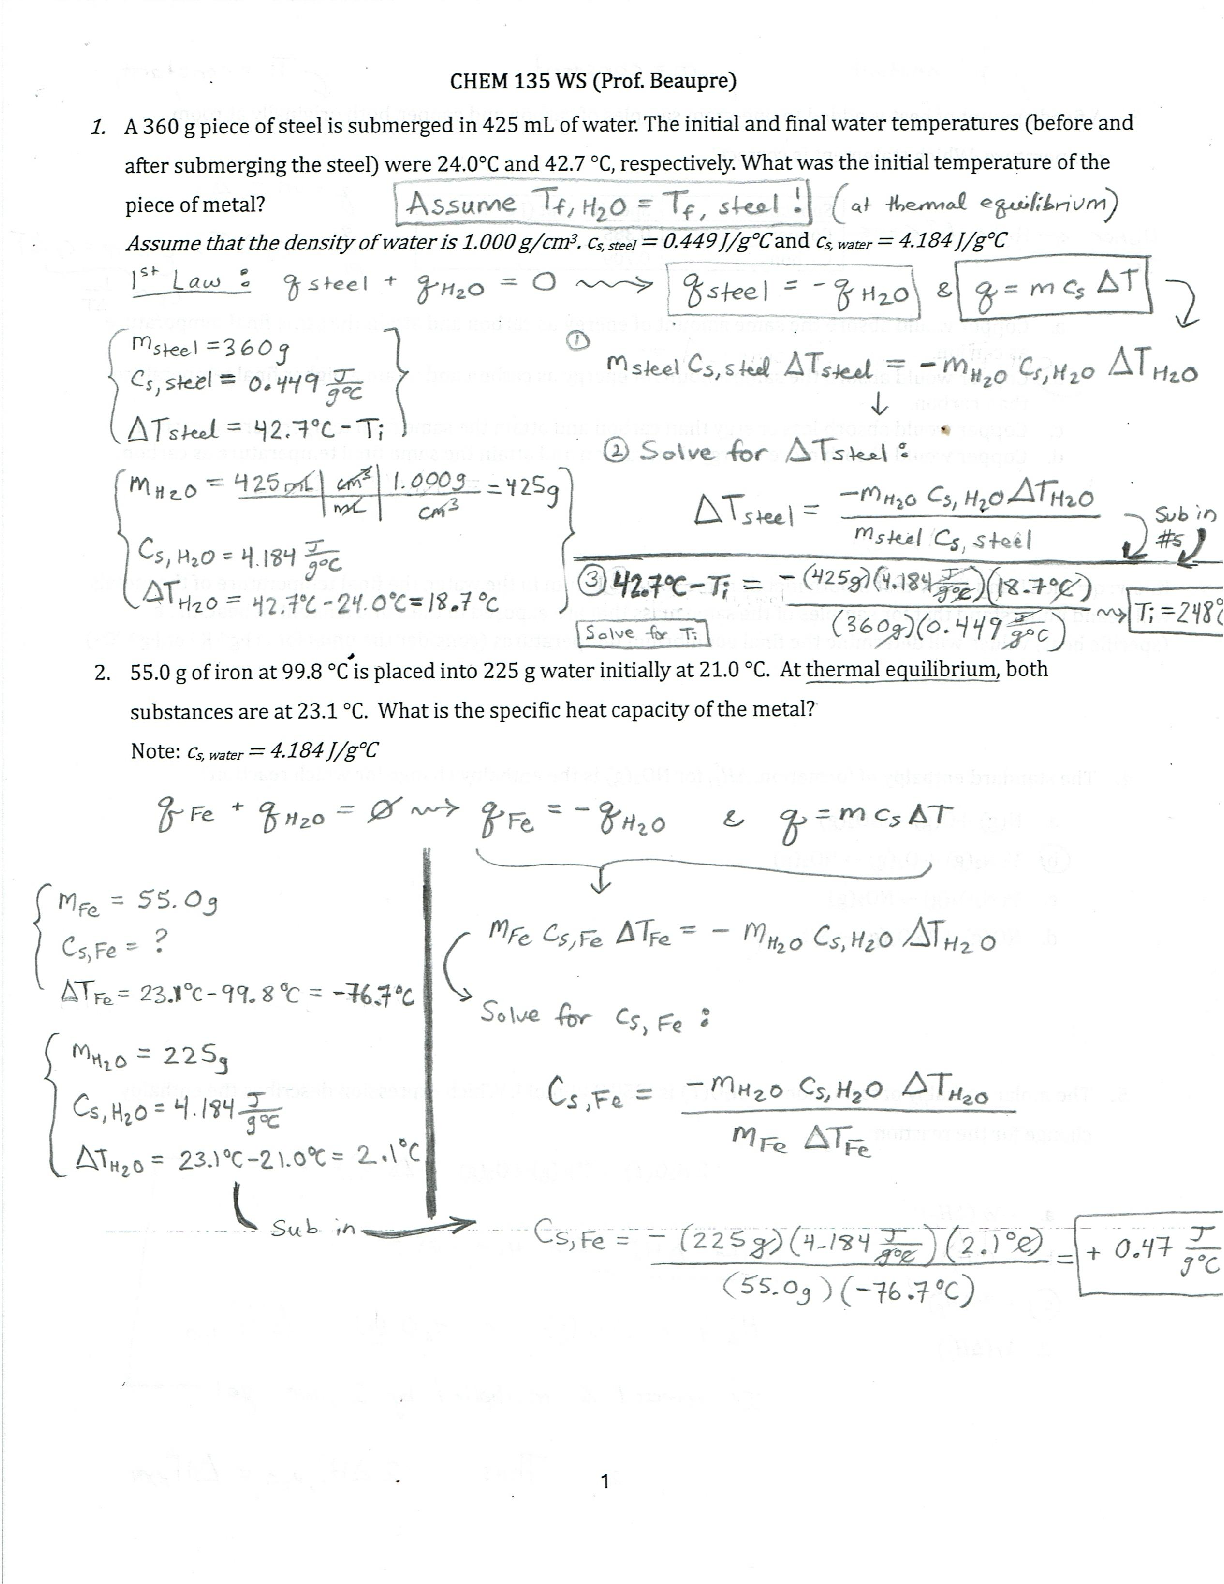 CHEM 135 WS (Prof. Beaupre)
1. A 360 g piece of steel is submerged in 425 mL of water. The initial and final water temperatures (before and
after submerging the steel) were 24.0°C and 42.7 °C, respectively. What was the initial temperature of the
piece of metal?
Assume Tf, H2O = Tf, steel! (at thermal equilibrium)
Assume that the density of water is 1.000 g/cm³. Cs, steel = 0.449 J/g°C and Cs, water = 4.184 J/g°C
1st Law: q steel + q H2O = 0 ⟿ q steel = - q H2O & q = m Cs ΔT
m steel = 360g
Cs, steel = 0.449 J/g°C
ΔT steel = 42.7°C - Ti
① m steel Cs, steel ΔT steel = - m H2O Cs, H2O ΔT H2O
↓
② Solve for ΔT steel:
m H2O = 425 mL | cm³ / mL | 1.000g / cm³ = 425g
ΔT steel = - m H2O Cs, H2O ΔT H2O / m steel Cs, steel
Sub in #s
Cs, H2O = 4.184 J/g°C
ΔT H2O = 42.7°C - 24.0°C = 18.7°C
③ 42.7°C - Ti = - (425g)(4.184 J/g°C)(18.7°C) / (360g)(0.449 J/g°C) ⟿ Ti = 248°
Solve for Ti
2. 55.0 g of iron at 99.8 °C is placed into 225 g water initially at 21.0 °C. At thermal equilibrium, both
substances are at 23.1 °C. What is the specific heat capacity of the metal?
Note: Cs, water = 4.184 J/g°C
q Fe + q H2O = Ø ⟿ q Fe = - q H2O & q = m Cs ΔT
m Fe = 55.0g
Cs, Fe = ?
ΔT Fe = 23.1°C - 99.8°C = -76.7°C
m Fe Cs, Fe ΔT Fe = - m H2O Cs, H2O ΔT H2O
Solve for Cs, Fe:
m H2O = 225g
Cs, H2O = 4.184 J/g°C
ΔT H2O = 23.1°C - 21.0°C = 2.1°C
Cs, Fe = - m H2O Cs, H2O ΔT H2O / m Fe ΔT Fe
Sub in → Cs, Fe = - (225g)(4.184 J/g°C)(2.1°C) / (55.0g)(-76.7°C) = + 0.47 J/g°C
1